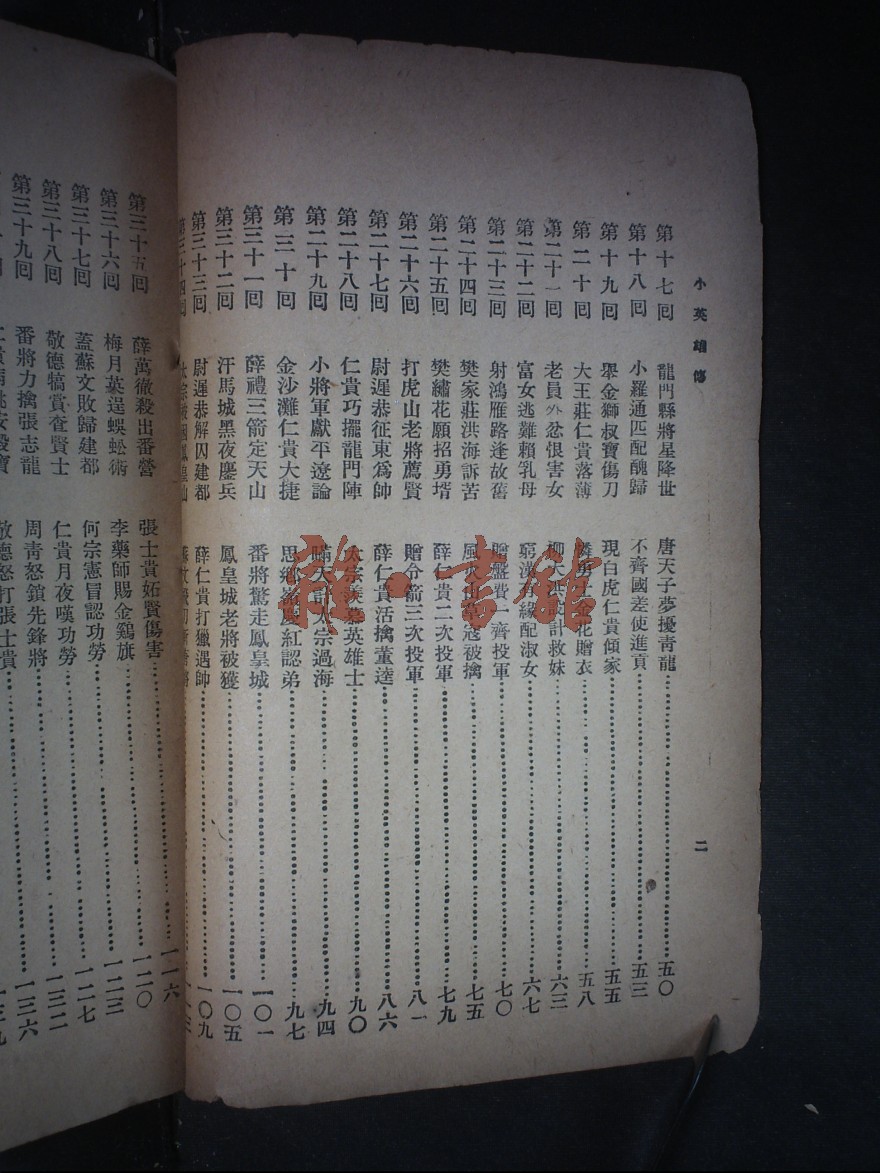 小英雄傳
二
第十七回 龍門縣將星降世 唐天子夢擾青龍 五〇
第十八回 小羅通匹配醜歸 不齊國差使進貢 五三
第十九回 舉金獅叔寶傷刀 現白虎仁貴傾家 五五
第二十回 大王莊仁貴落薄 金花贈衣 五八
第二十一回 老員外忿恨害女 柳大洪設計救妹 六三
第二十二回 富女逃難賴乳母 窮漢有緣配淑女 六七
第二十三回 射鴻雁路逢故舊 贈盤費齊投軍 七〇
第二十四回 樊家莊洪海訴苦 風火山草寇被擒 七五
第二十五回 樊繡花願招勇壻 薛仁貴二次投軍 七九
第二十六回 打虎山老將薦賢 贈令箭三次投軍 八一
第二十七回 尉遲恭征東爲帥 薛仁貴活擒董逵 八六
第二十八回 仁貴巧擺龍門陣 英雄士 九〇
第二十九回 小將軍獻平遼論 瞞天計太宗過海 九四
第三十回 金沙灘仁貴大捷 思鄉嶺慶紅認弟 九七
第三十一回 薛禮三箭定天山 番將驚走鳳皇城 一〇一
第三十二回 汗馬城黑夜鏖兵 鳳皇城老將被獲 一〇五
第三十三回 尉遲恭解囚建都 薛仁貴打獵遇帥 一〇九
第三十四回 太宗被困鳳皇山
第三十五回 薛萬徹殺出番營 張士貴妬賢傷害 一一六
第三十六回 梅月英逞蜈蚣術 李藥師賜金鷄旗 一二〇
第三十七回 蓋蘇文敗歸建都 何宗憲冒認功勞 一二三
第三十八回 敬德犒賞查賢士 仁貴月夜嘆功勞 一二七
第三十九回 番將力擒張志龍 周青怒鎖先鋒將 一三二
敬德怒打張士貴 一三六
雜·書館